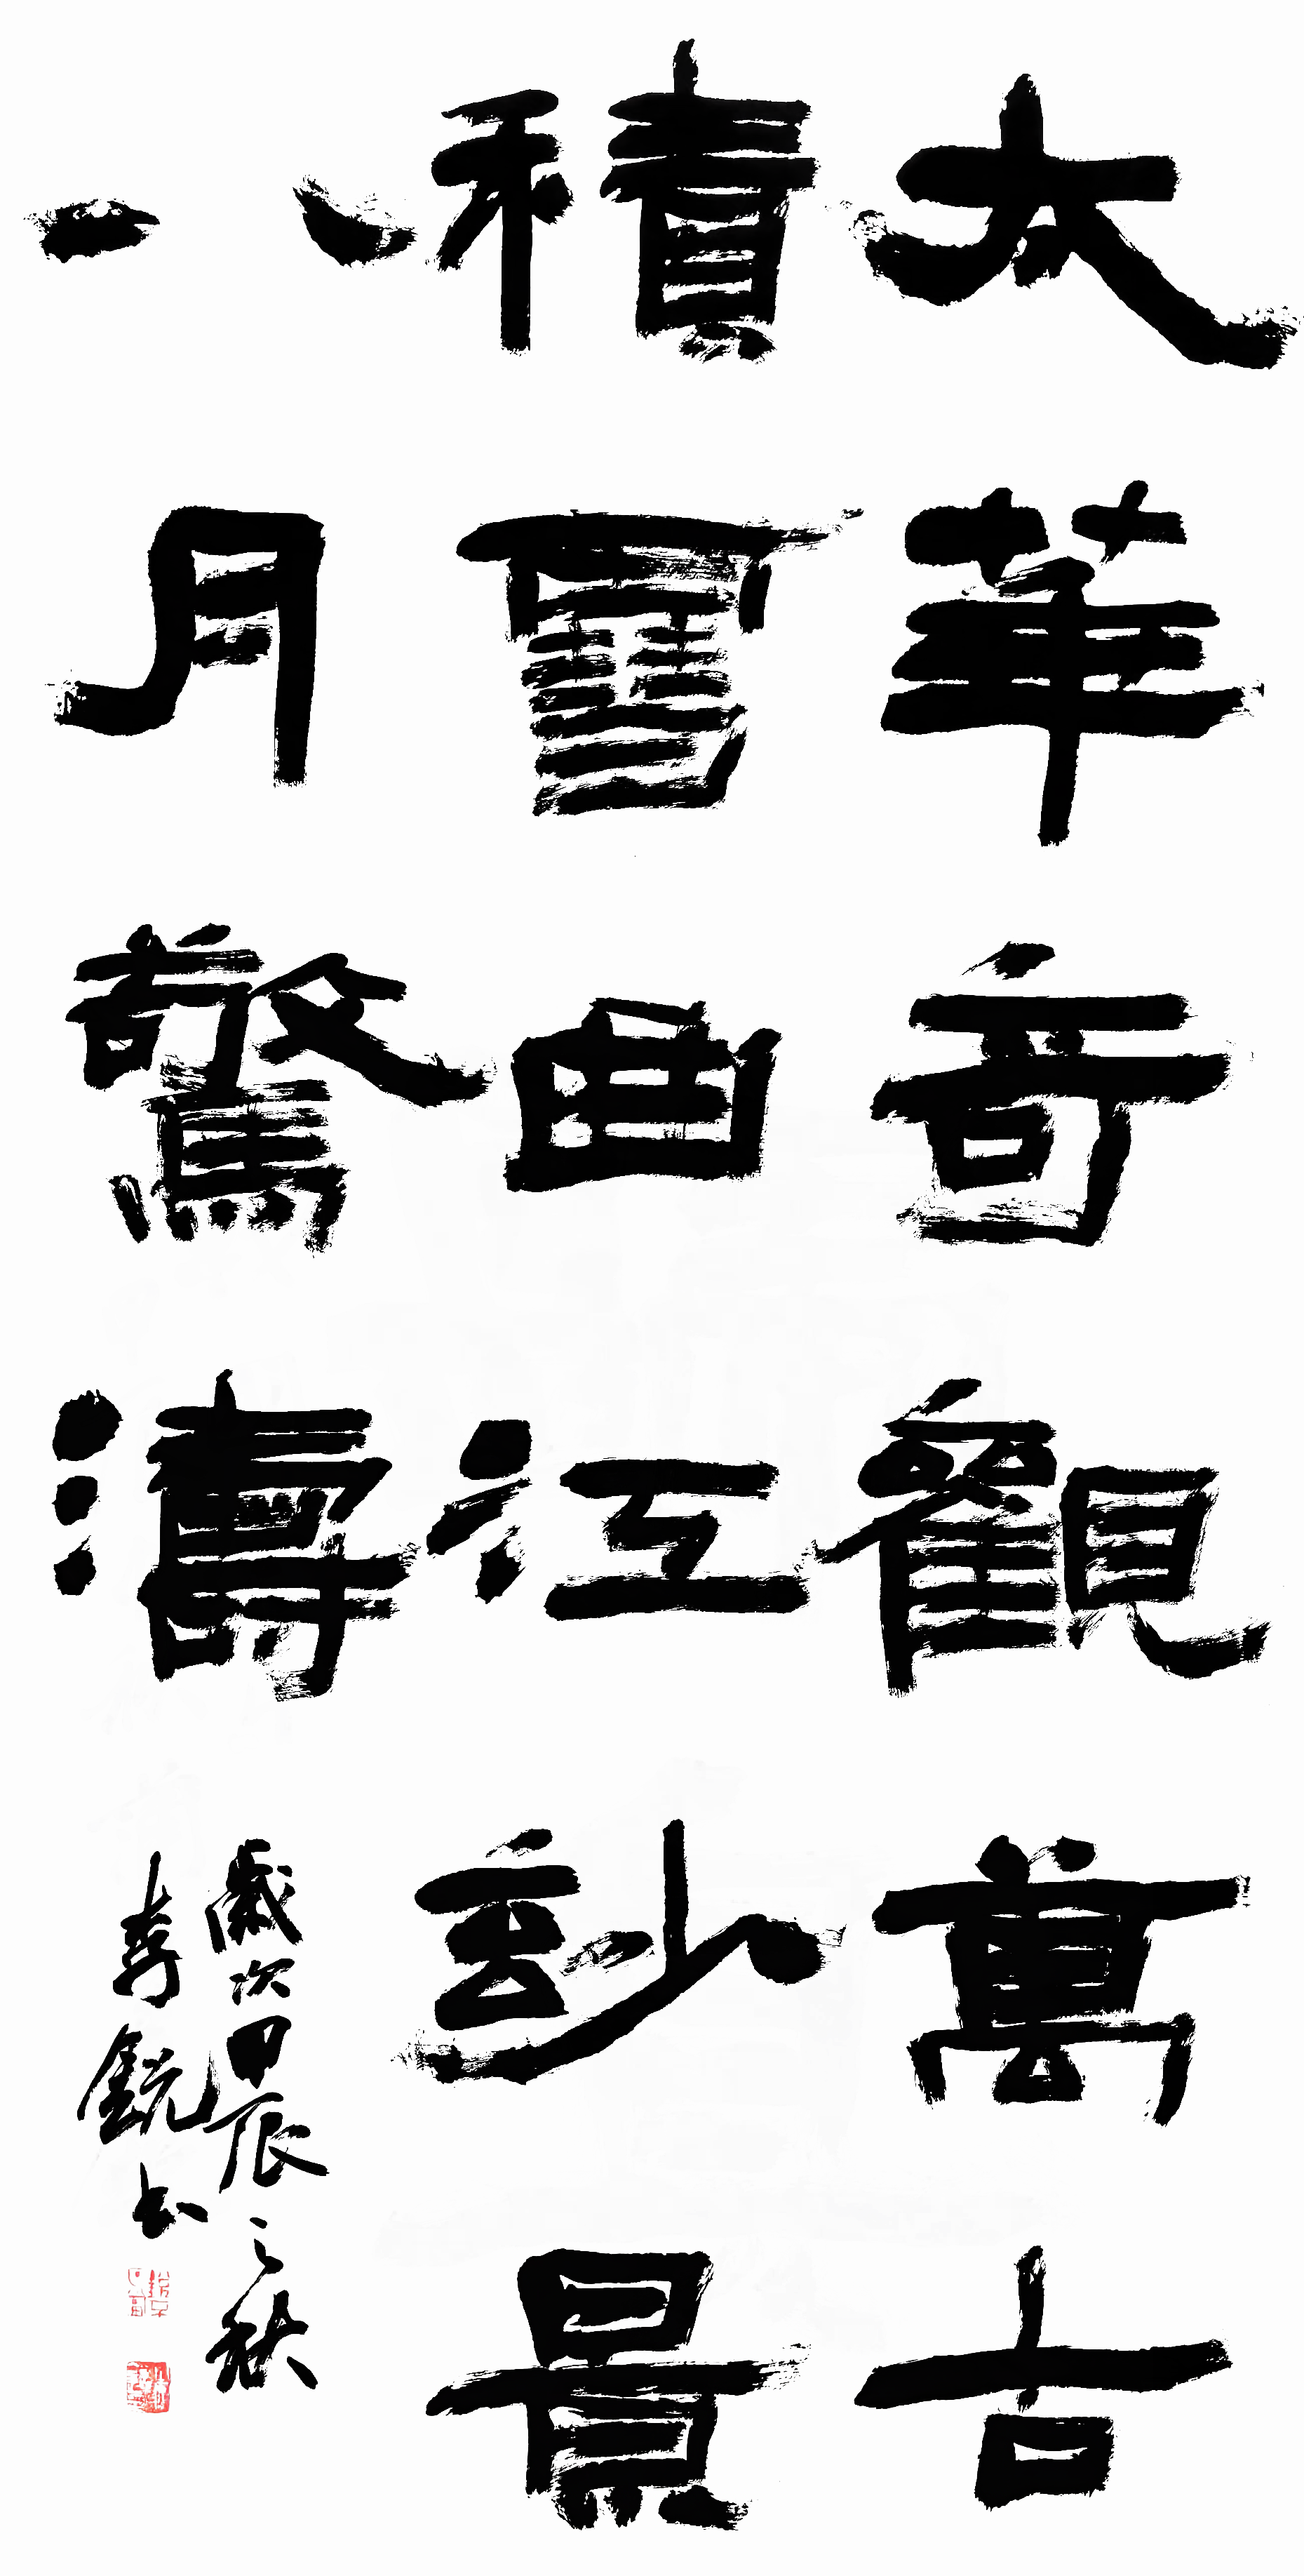 太華奇觀萬古
積雪曲江玅景
八月驚濤
歲次甲辰之秋
李銳书